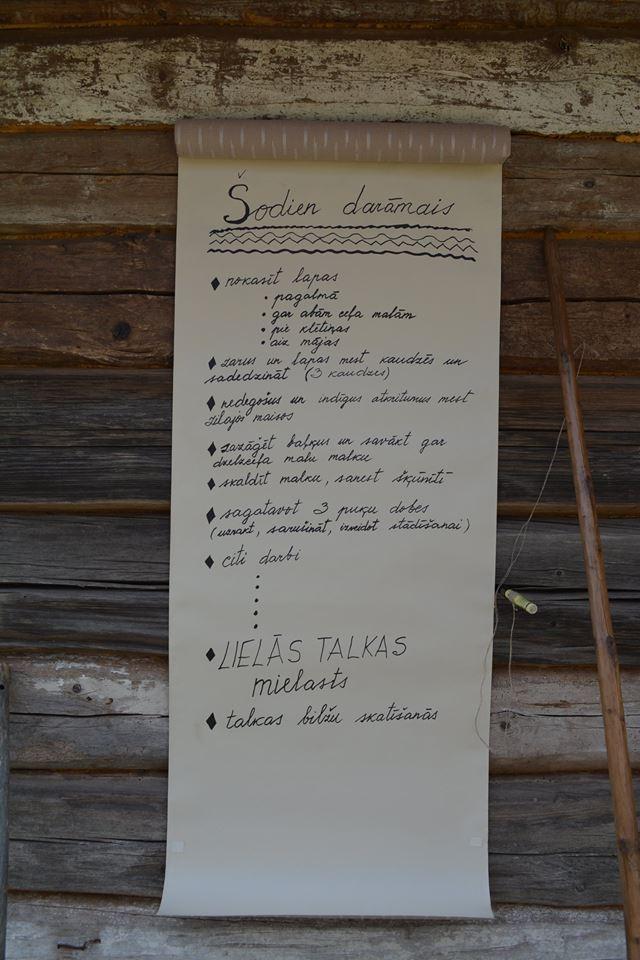 Šodien darāmais
♦ nokasīt lapas
• pagalmā
• gar abām ceļa malām
• pie klētiņas
• aiz mājas
♦ zarus un lapas mest kaudzēs un
sadedzināt (3 kaudzes)
♦ nedegošus un indīgus atkritumus mest
zilajos maisos
♦ sazāģēt baļķus un savākt gar
dzelzceļa malu malku
♦ skaldīt malku, sanest šķūnītī
♦ sagatavot 3 puķu dobes
(uzrakt, sarušināt, izveidot stādīšanai)
♦ citi darbi
•
•
•
•
•
♦ LIELĀS TALKAS
mielasts
♦ talkas bilžu skatīšanās